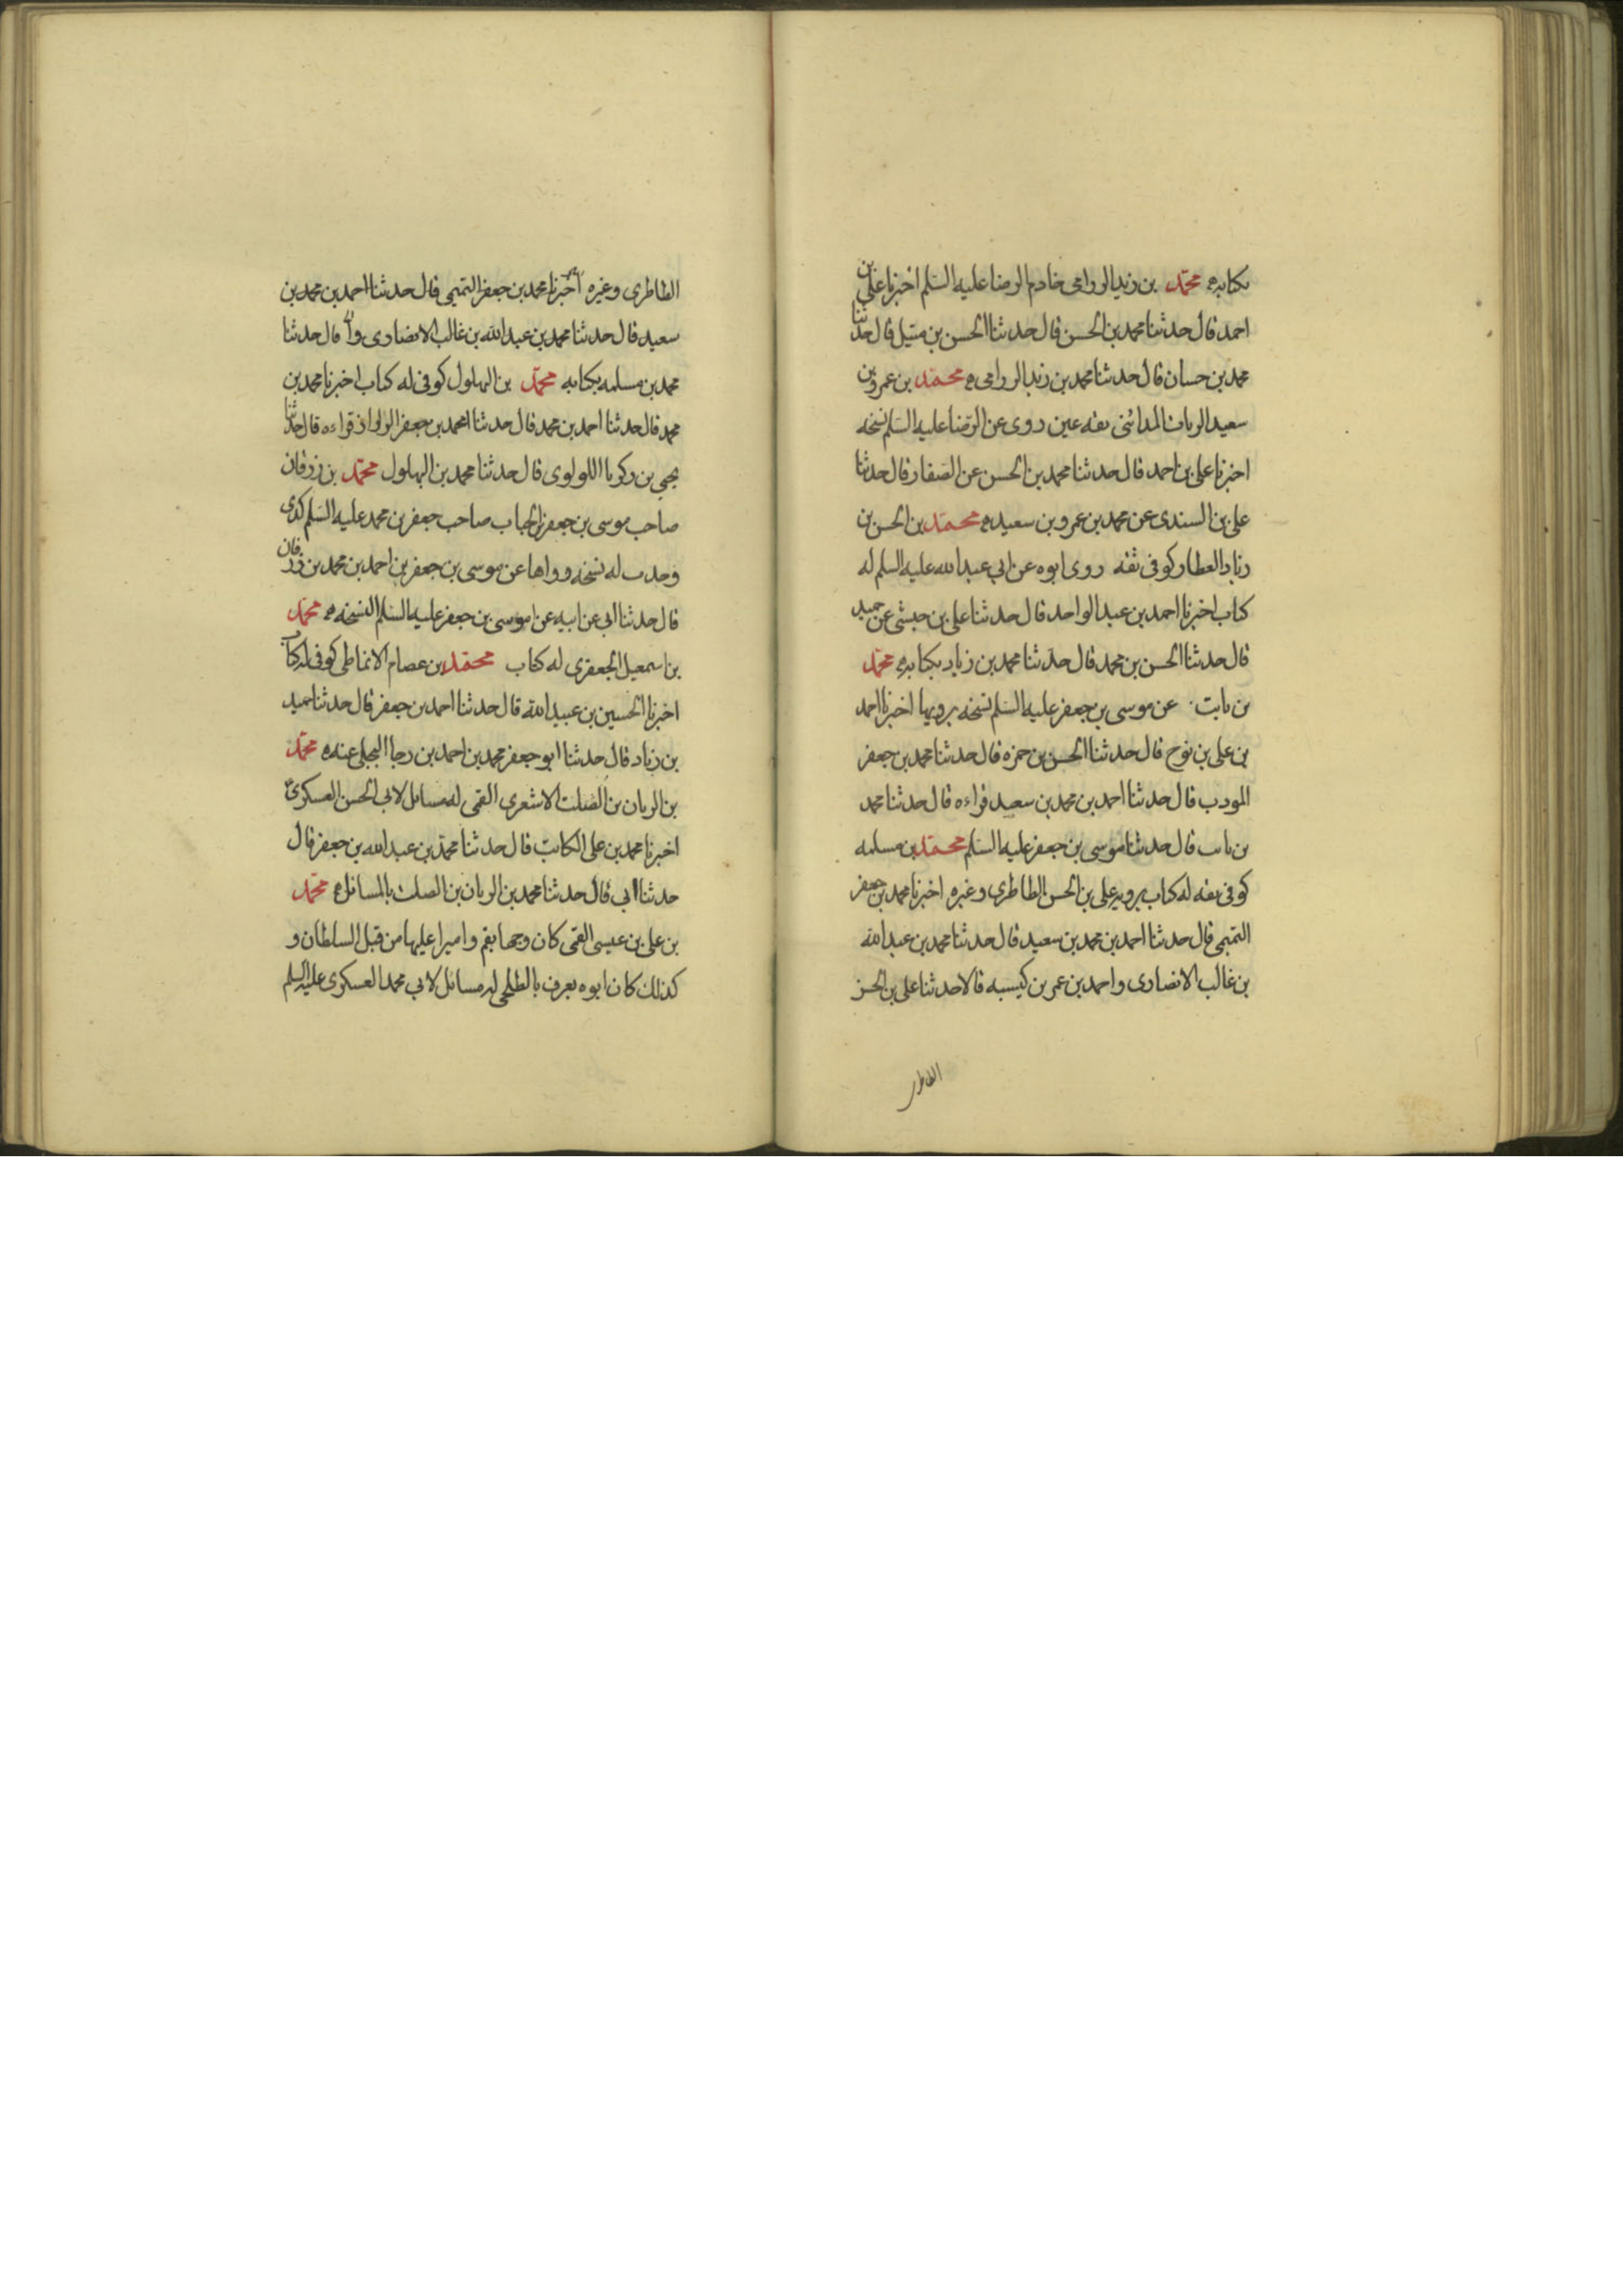 بكتابه محمد بن زيد الرزامى خادم الرضا عليه السلم اخبرنا على بن
احمد قال حدثنا محمد بن الحسن قال حدثنا الحسن بن متيل قال حدثنا
محمد بن حسان قال حدثنا محمد بن زيد الرزامى محمد بن عمرو بن
سعيد الزيات المدائنى ثقه عين روى عن الرضا عليه السلم نسخه
اخبرنا على بن احمد قال حدثنا محمد بن الحسن عن الصفار قال حدثنا
على بن السندى عن محمد بن عمرو بن سعيد محمد بن الحسن بن
زياد العطار كوفى ثقه روى ابوه عن ابى عبد الله عليه السلم له
كتاب اخبرنا احمد بن عبد الواحد قال حدثنا على بن حبشى عن حميد
قال حدثنا الحسن بن محمد قال حدثنا محمد بن زياد بكتابه محمد
بن ثابت عن موسى بن جعفر عليه السلم نسخه يرويها اخبرنا احمد
بن على بن نوح قال حدثنا الحسن بن حمزه قال حدثنا محمد بن جعفر
المودب قال حدثنا احمد بن محمد بن سعيد قراءه قال حدثنا محمد
بن ثابت قال حدثنا موسى بن جعفر عليه السلم محمد بن مسلمه
كوفى ثقه له كتاب يرويه على بن الحسن الطاطرى وغيره اخبرنا محمد بن جعفر
التميمى قال حدثنا احمد بن محمد بن سعيد قال حدثنا محمد بن عبد الله
بن غالب الانصارى واحمد بن عمر بن كيسبه قالا حدثنا على بن الحسن
الطاطرى
الطاطرى وغيره اخبرنا محمد بن جعفر التميمى قال حدثنا احمد بن محمد بن
سعيد قال حدثنا محمد بن عبد الله بن غالب الانصارى قال حدثنا
محمد بن مسلمه بكتابه محمد بن البهلول كوفى له كتاب اخبرنا محمد بن
محمد قال حدثنا احمد بن محمد قال حدثنا محمد بن جعفر الرزاز قراءه قال حدثنا
يحيى بن زكريا اللولوى قال حدثنا محمد بن البهلول محمد بن زرقان
صاحب موسى بن جعفر بن الحباب صاحب جعفر بن محمد عليه السلم كذى
وجدت له نسخه رواها عن موسى بن جعفر بن احمد بن محمد بن زرقان
قال حدثنا ابى عن ابيه عن موسى بن جعفر عليه السلم النسخه محمد
بن اسمعيل الجعفرى له كتاب محمد بن عصام الانماطى كوفى له كتاب
اخبرنا الحسين بن عبيد الله قال حدثنا احمد بن جعفر قال حدثنا حميد
بن زياد قال حدثنا ابو جعفر محمد بن احمد بن رجا البجلى عنه محمد
بن الريان بن الصلت الاشعرى القمى له مسائل لابى الحسن العسكرى
اخبرنا محمد بن على الكاتب قال حدثنا محمد بن عبد الله بن جعفر قال
حدثنا ابى قال حدثنا محمد بن الريان بن الصلت بالمسائل محمد
بن على بن عيسى القمى كان وجها بقم واميرا عليها من قبل السلطان و
كذلك كان ابوه يعرف بالطلحى له مسائل لابى محمد العسكرى عليه السلم